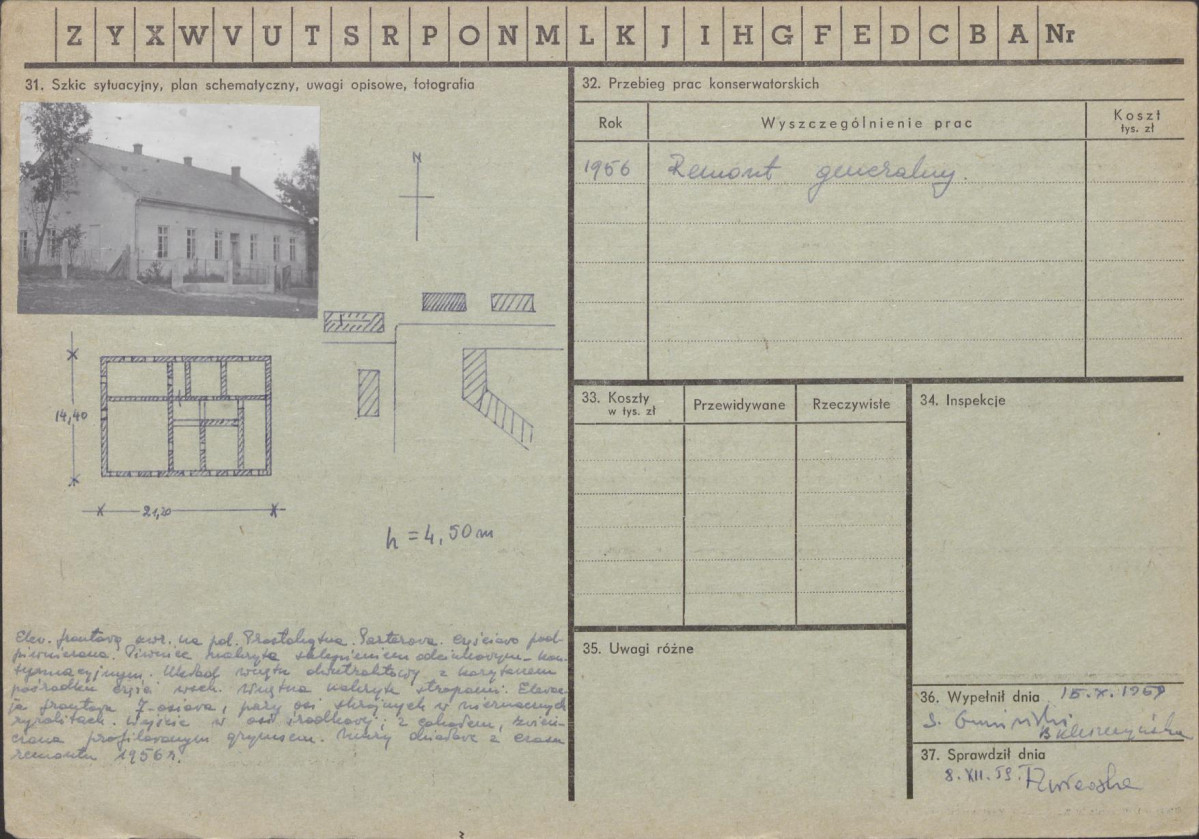 Z Y X W V U T S R P O N M L K J I H G F E D C B A Nr
31. Szkic sytuacyjny, plan schematyczny, uwagi opisowe, fotografia
N
14,40
21,20
h = 4,50 m
Elew. frontową zwr. na pd. Prostokątna. Parterowa. Częściowo pod-
piwniczona. Piwnice nakryte sklepieniem odcinkowym-kon-
sygnacyjnym. Układ wnętrz dwutraktowy z korytarzem
pośrodku części wsch. Wnętrza nakryte stropami. Elewac-
ja frontowa 7-osiowa, pary osi skrajnych w nieznacznych
ryzalitach. Wejście w osi środkowej, z schodem, zwień-
czona profilowanym gzymsem. dachowe z czasu
remontu 1956 r.
32. Przebieg prac konserwatorskich
Rok Wyszczególnienie prac Koszt
tys. zł
1956 Remont generalny.
33. Koszty
w tys. zł
Przewidywane Rzeczywiste
34. Inspekcje
35. Uwagi różne
36. Wypełnił dnia 15.X.1959
37. Sprawdził dnia
8.XII.59.